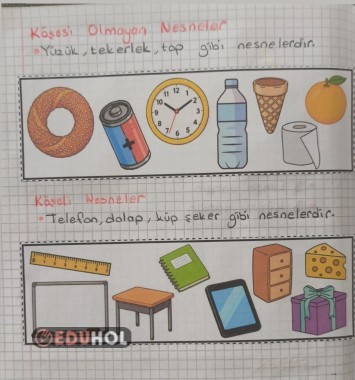 Köşesi Olmayan Nesneler
• Yüzük, tekerlek, top gibi nesnelerdir.
12
1
2
3
4
5
6
7
8
9
10
11
+
Köşeli Nesneler
• Telefon, dolap, küp şeker gibi nesnelerdir.
EDUHOL